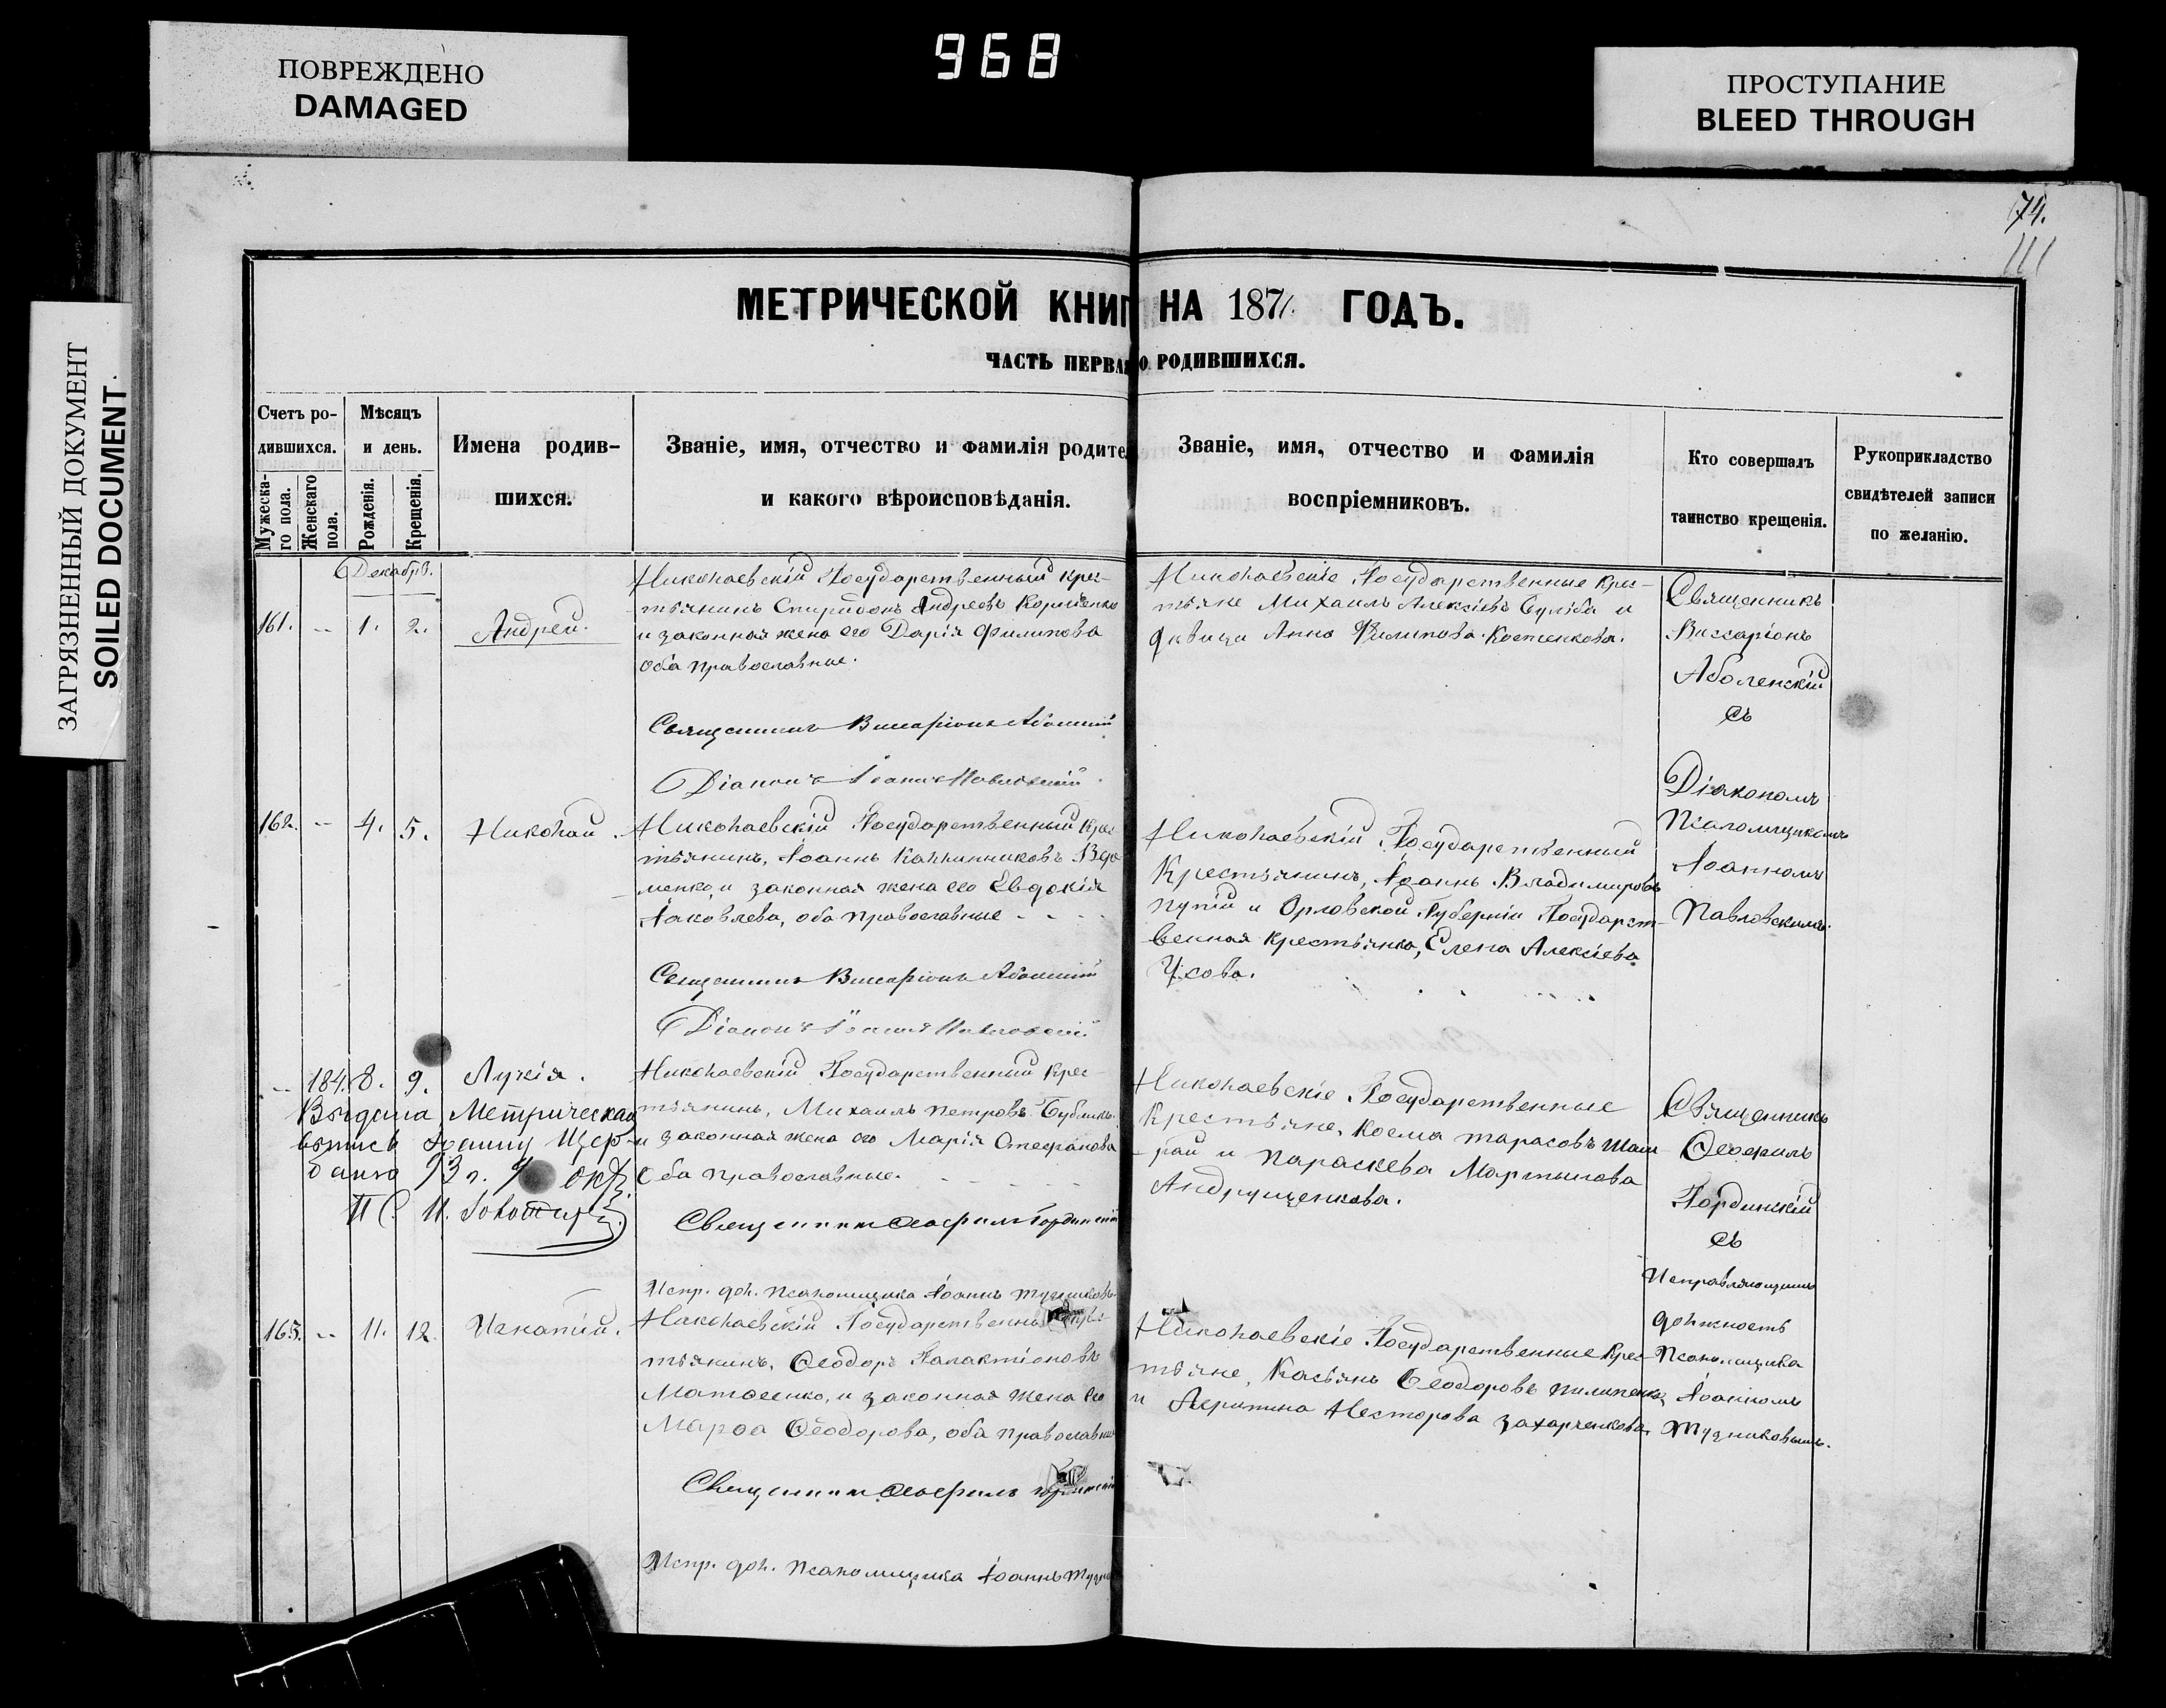 968
ПОВРЕЖДЕНО
DAMAGED
ПРОСТУПАНИЕ
BLEED THROUGH
ЗАГРЯЗНЕННЫЙ ДОКУМЕНТ
SOILED DOCUMENT
74.
111
МЕТРИЧЕСКОЙ КНИГ НА 1871. ГОДЪ.
ЧАСТЬ ПЕРВАЯ О РОДИВШИХСЯ.
Счетъ ро-
дившихся.
Мужеска-
го пола.
Женскаго
пола.
Мѣсяцъ
и день.
Рожденія.
Крещенія.
Имена родив-
шихся.
Званіе, имя, отчество и фамилія родите
и какого вѣроисповѣданія.
Званіе, имя, отчество и фамилія
воспріемниковъ.
Кто совершалъ
таинство крещенія.
Рукоприкладство
свидѣтелей записи
по желанію.
Декабрь.
161. -- 1. 2. Андрей.
Николаевскій Государственный крес-
тьянинъ Спиридонъ Андреевъ Корніенко
и законная жена его Дарія Филипова
оба православные.
Священникъ Виссаріонъ Аболенскій
Діаконъ Іоаннъ Павловскій
Николаевскіе Государственные крес-
тьяне Михаилъ Алексіевъ Сулiба и
дѣвица Анна Филипова Костенкова.
Священникъ
Виссаріонъ
Аболенскій
съ
Діакономъ
Псаломщикомъ
Іоанномъ
Павловскимъ.
162. -- 4. 5. Николай.
Николаевскій Государственный крес-
тьянинъ, Іоаннъ Каллиниковъ Вдо-
менко и законная жена его Евдокія
Іаковлева, оба православные
Священникъ Виссаріонъ Аболенскій
Діаконъ Іоаннъ Павловскій
Николаевскій Государственный
Крестьянинъ, Іоаннъ Владимировъ
Пупій и Орловской Губерніи Государст-
венная крестьянка, Елена Алексіева
Ухова.
-- 184. 8. 9. Лукія.
Выдана Метрическая
выпись Іоанну Щер-
бань 93 г. 9 окт.
П С. И.
Николаевскій Государственный крес-
тьянинъ, Михаилъ Петровъ Бубликъ
и законная жена его Марія Стефанова
Оба православные.
Священникъ Ѳеофилъ Гординскій
Испр. дол. псаломщика Іоаннъ Тудниковъ
Николаевскіе Государственные
Крестьяне, Косма Тарасовъ Шам-
рай и Параскева Мартынова
Андрущенкова.
Священникъ
Ѳеофилъ
Гординскій
съ
Исправляющимъ
должность
Псаломщика
Іоанномъ
Тудниковымъ.
163. -- 11. 12. Игнатій.
Николаевскій Государственный крес-
тьянинъ, Ѳеодоръ Галактіоновъ
Матвеенко, и законная жена его
Марѳа Ѳеодорова, оба православные
Священникъ Ѳеофилъ Гординскій
Испр. дол. Псаломщика Іоаннъ Тудни
Николаевскіе Государственные Крес-
тьяне, Касьянъ Ѳеодоровъ Пилипенко,
и Агрипина Несторова Захарченкова.